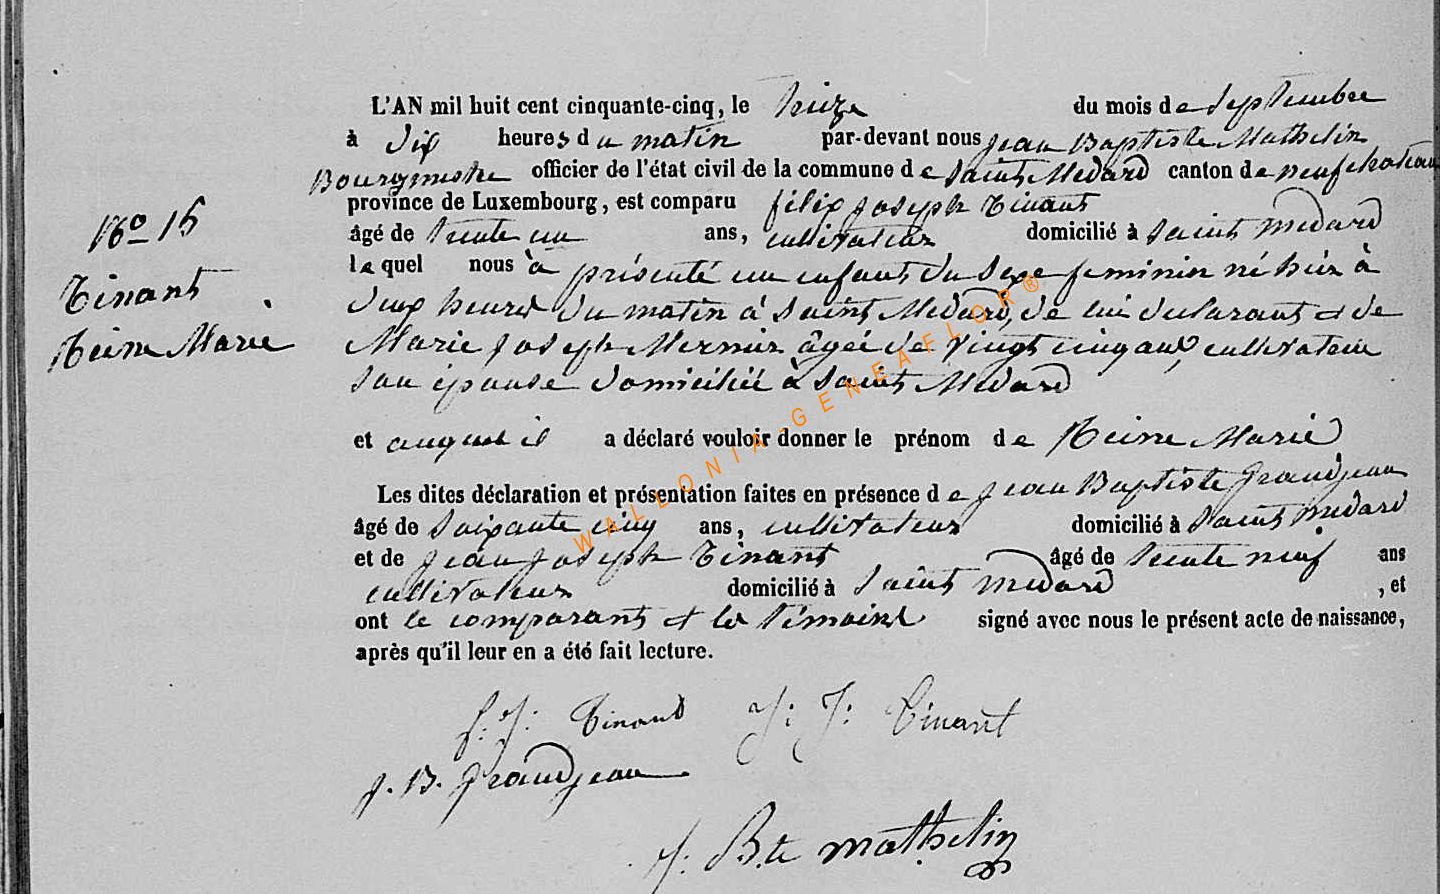 L'AN mil huit cent cinquante-cinq, le treize du mois de septembre
à dix heures du matin par-devant nous jean Baptiste Mathelin
Bourgmestre officier de l'état civil de la commune de Saint Médard canton de neufchateau
province de Luxembourg, est comparu félix joseph Tinant
âgé de trente un ans, cultivateur domicilié à Saint médard
lequel nous a présenté un enfant du sexe feminin né hier à
deux heures du matin à Saint Médard, de lui declarant et de
Marie joseph Mernier âgée de vingt cinq ans, cultivateur
son épouse domiciliée à Saint Médard
et auquel il a déclaré vouloir donner le prénom de Reine Marie
Les dites déclaration et présentation faites en présence de jean Baptiste Grandjean
âgé de soixante cinq ans, cultivateur domicilié à Saint médard
et de jean joseph Tinant âgé de trente neuf ans
cultivateur domicilié à Saint médard , et
ont le comparant et les témoins signé avec nous le présent acte de naissance,
après qu'il leur en a été fait lecture.
No 15
Tinant
Reine Marie
f. J. Tinant J: J: Tinant
J. B. Grandjean
J. Bte mathelin
WALLONIA-GENEAFLOR®